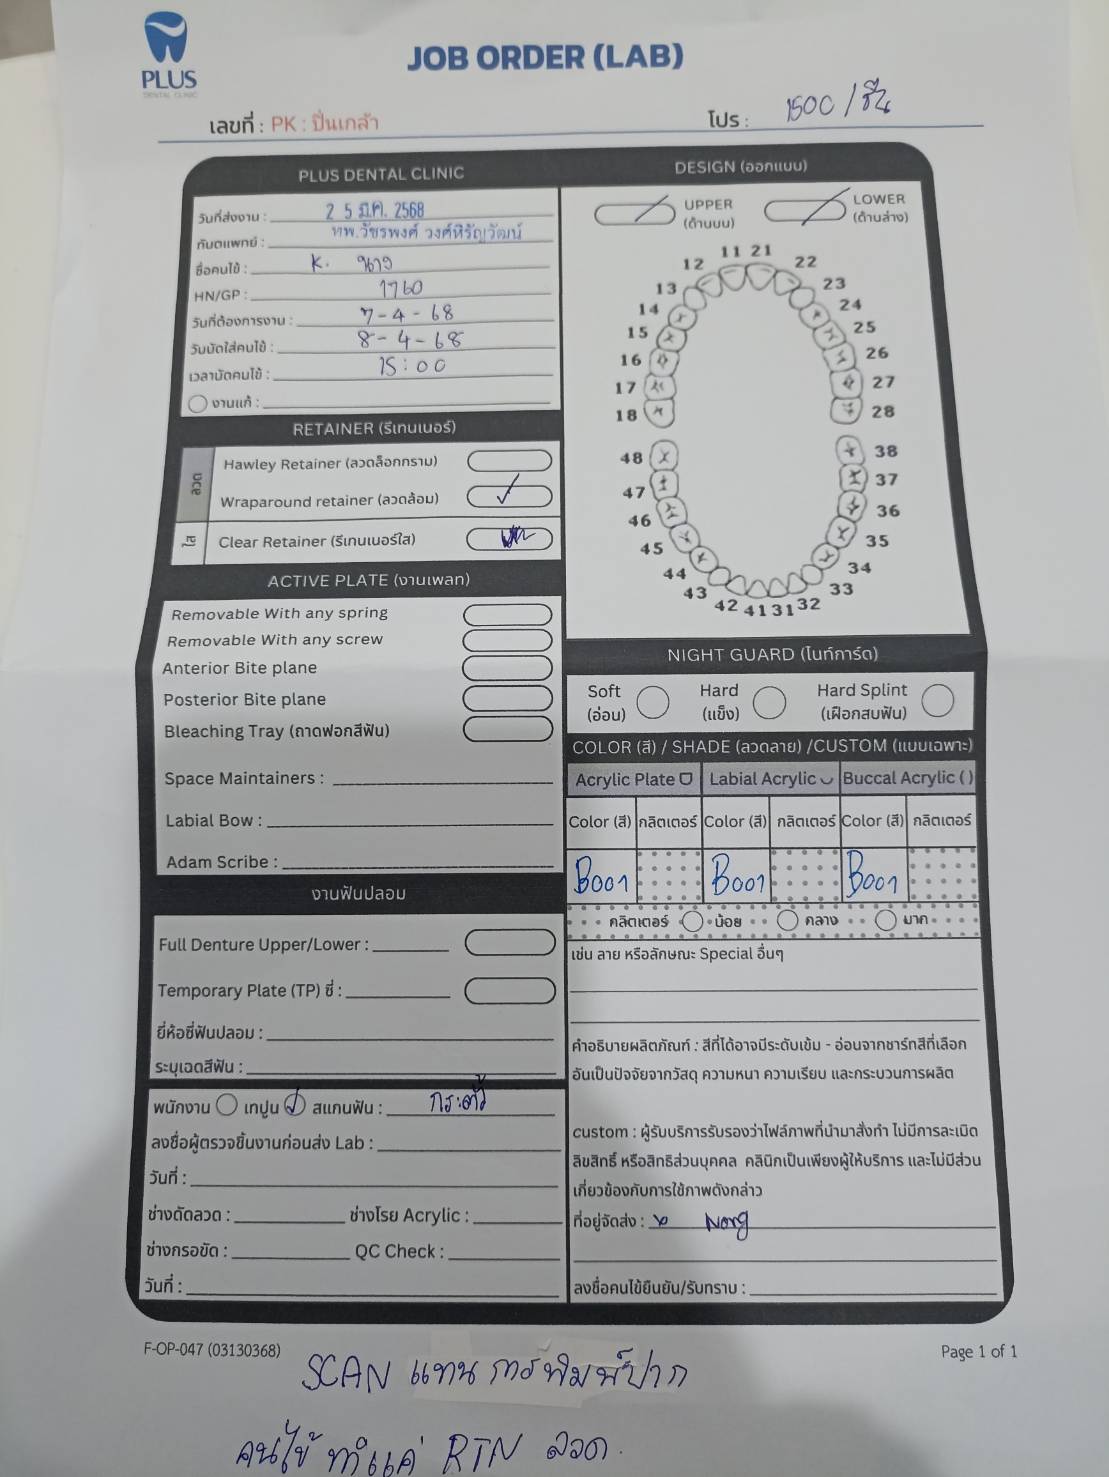 PLUS
DENTAL CLINIC
JOB ORDER (LAB)
เลขที่ : PK : ปิ่นเกล้า
โปร : 1500 / ชิ้น
PLUS DENTAL CLINIC
วันที่ส่งงาน : 2 5 มี.ค. 2568
ทันตแพทย์ : ทพ.วัชรพงศ์ วงศ์หิรัญวัฒน์
ชื่อคนไข้ : K.
HN/GP : 1760
วันที่ต้องการงาน : 7-4-68
วันนัดใส่คนไข้ : 8-4-68
เวลานัดคนไข้ : 15:00
งานแก้ :
RETAINER (รีเทนเนอร์)
ลวด
Hawley Retainer (ลวดล็อกกราม)
Wraparound retainer (ลวดล้อม) ✓
ใส
Clear Retainer (รีเทนเนอร์ใส)
ACTIVE PLATE (งานเพลท)
Removable With any spring
Removable With any screw
Anterior Bite plane
Posterior Bite plane
Bleaching Tray (ถาดฟอกสีฟัน)
Space Maintainers :
Labial Bow :
Adam Scribe :
งานฟันปลอม
Full Denture Upper/Lower :
Temporary Plate (TP) ซี่ :
ยี่ห้อซี่ฟันปลอม :
ระบุเฉดสีฟัน :
พนักงาน เทปูน ✓ สแกนฟัน : กระต่าย
ลงชื่อผู้ตรวจชิ้นงานก่อนส่ง Lab :
วันที่ :
ช่างดัดลวด : ช่างโรย Acrylic :
ช่างกรอขัด : QC Check :
วันที่ :
DESIGN (ออกแบบ)
UPPER
(ด้านบน)
LOWER
(ด้านล่าง)
11 21
12 22
13 23
14 24
15 25
16 26
17 27
18 28
48 38
47 37
46 36
45 35
44 34
43 33
42 41 31 32
NIGHT GUARD (ไนท์การ์ด)
Soft
(อ่อน)
Hard
(แข็ง)
Hard Splint
(เฝือกสบฟัน)
COLOR (สี) / SHADE (ลวดลาย) /CUSTOM (แบบเฉพาะ)
Acrylic Plate Labial Acrylic Buccal Acrylic ( )
Color (สี) กลิตเตอร์ Color (สี) กลิตเตอร์ Color (สี) กลิตเตอร์
B001 B001 B001
กลิตเตอร์ น้อย กลาง มาก
เช่น ลาย หรือลักษณะ Special อื่นๆ
คำอธิบายผลิตภัณฑ์ : สีที่ได้อาจมีระดับเข้ม - อ่อนจากชาร์ทสีที่เลือก
อันเป็นปัจจัยจากวัสดุ ความหนา ความเรียบ และกระบวนการผลิต
custom : ผู้รับบริการรับรองว่าไฟล์ภาพที่นำมาสั่งทำ ไม่มีการละเมิด
ลิขสิทธิ์ หรือสิทธิส่วนบุคคล คลินิกเป็นเพียงผู้ให้บริการ และไม่มีส่วน
เกี่ยวข้องกับการใช้ภาพดังกล่าว
ที่อยู่จัดส่ง :
ลงชื่อคนไข้ยืนยัน/รับทราบ :
F-OP-047 (03130368)
Page 1 of 1
SCAN แทน การพิมพ์ปาก
คนไข้ ทำแค่ RTN ลวด.